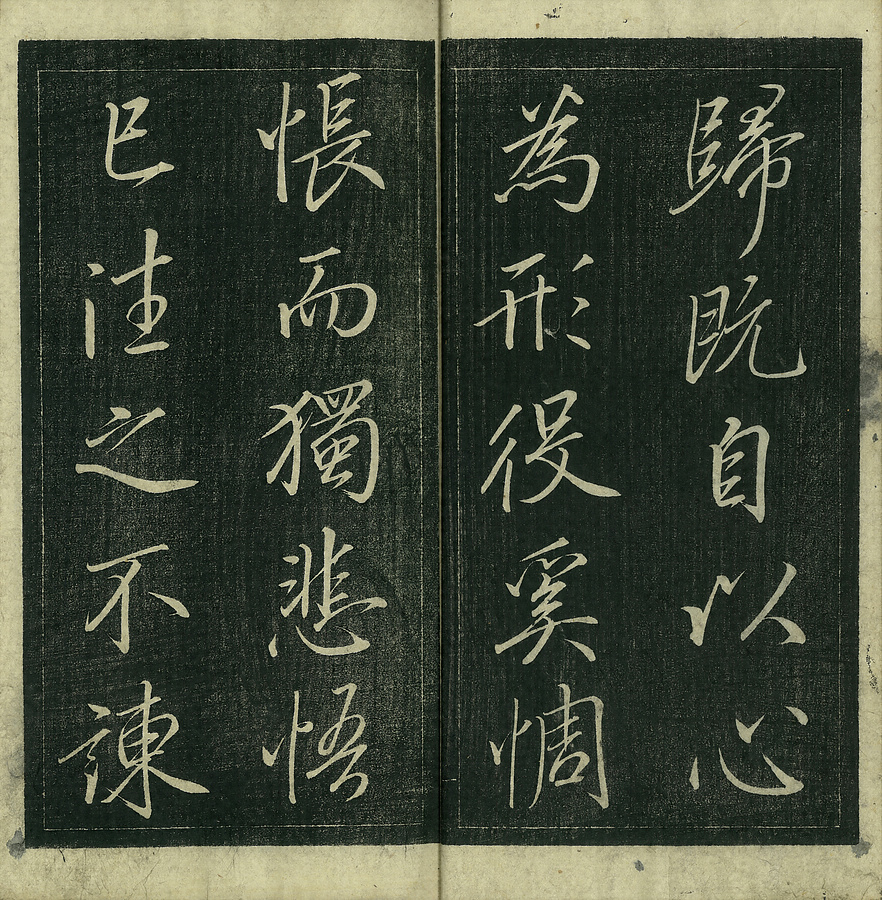 歸既自以心
為形役奚惆
悵而獨悲悟
已往之不諫